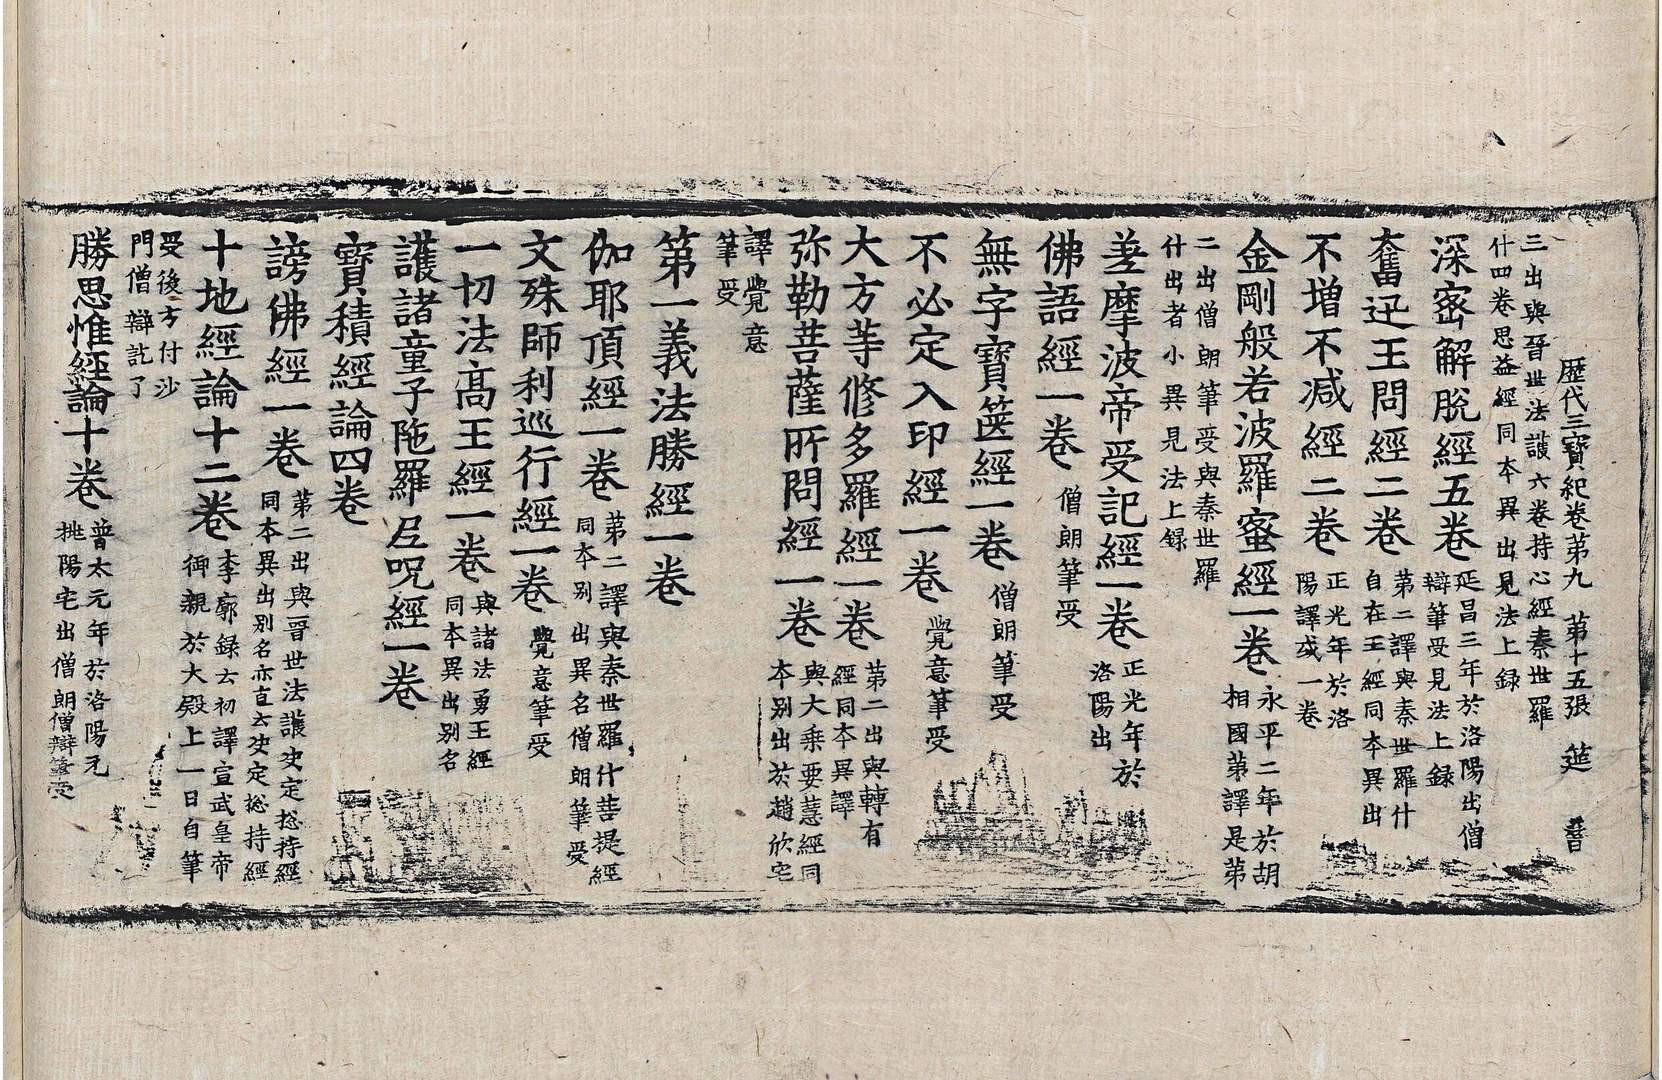 歷代三寶紀卷第九 第十五張 筵 暜
三出與晉世法護六卷持心經秦世羅
什四卷思益經同本異出見法上録
深密解脫經五卷 延昌三年於洛陽出僧
辯筆受見法上録
奮迅王問經二卷 第二譯與秦世羅什
自在王經同本異出
不增不减經二卷 正光年於洛
陽譯或一卷
金剛般若波羅蜜經一卷 永平二年於胡
相國第譯是第
二出僧朗筆受與秦世羅
什出者小異見法上録
差摩波帝受記經一卷 正光年於
洛陽出
佛語經一卷 僧朗筆受
無字寶篋經一卷 僧朗筆受
不必定入印經一卷 覺意筆受
大方等修多羅經一卷 第二出與轉有
經同本異譯
弥勒菩薩所問經一卷 與大乘要慧經同
本別出於趙欣宅
譯覺意
筆受
第一義法勝經一卷
伽耶頂經一卷 第二譯與秦世羅什菩提經
同本别出異名僧朗筆受
文殊師利巡行經一卷 覺意筆受
一切法高王經一卷 與諸法勇王經
同本異出別名
護諸童子陁羅尼呪經一卷
寶積經論四卷
謗佛經一卷 第二出與晋世法護决定㧾持經
同本異出别名亦直云决定㧾持經
十地經論十二卷 李廓録云初譯宣武皇帝
御親於大殿上一日自筆
受後方付沙
門僧辯訖了
勝思惟經論十卷 普太元年於洛陽元
桃陽宅出僧朗僧辯筆受